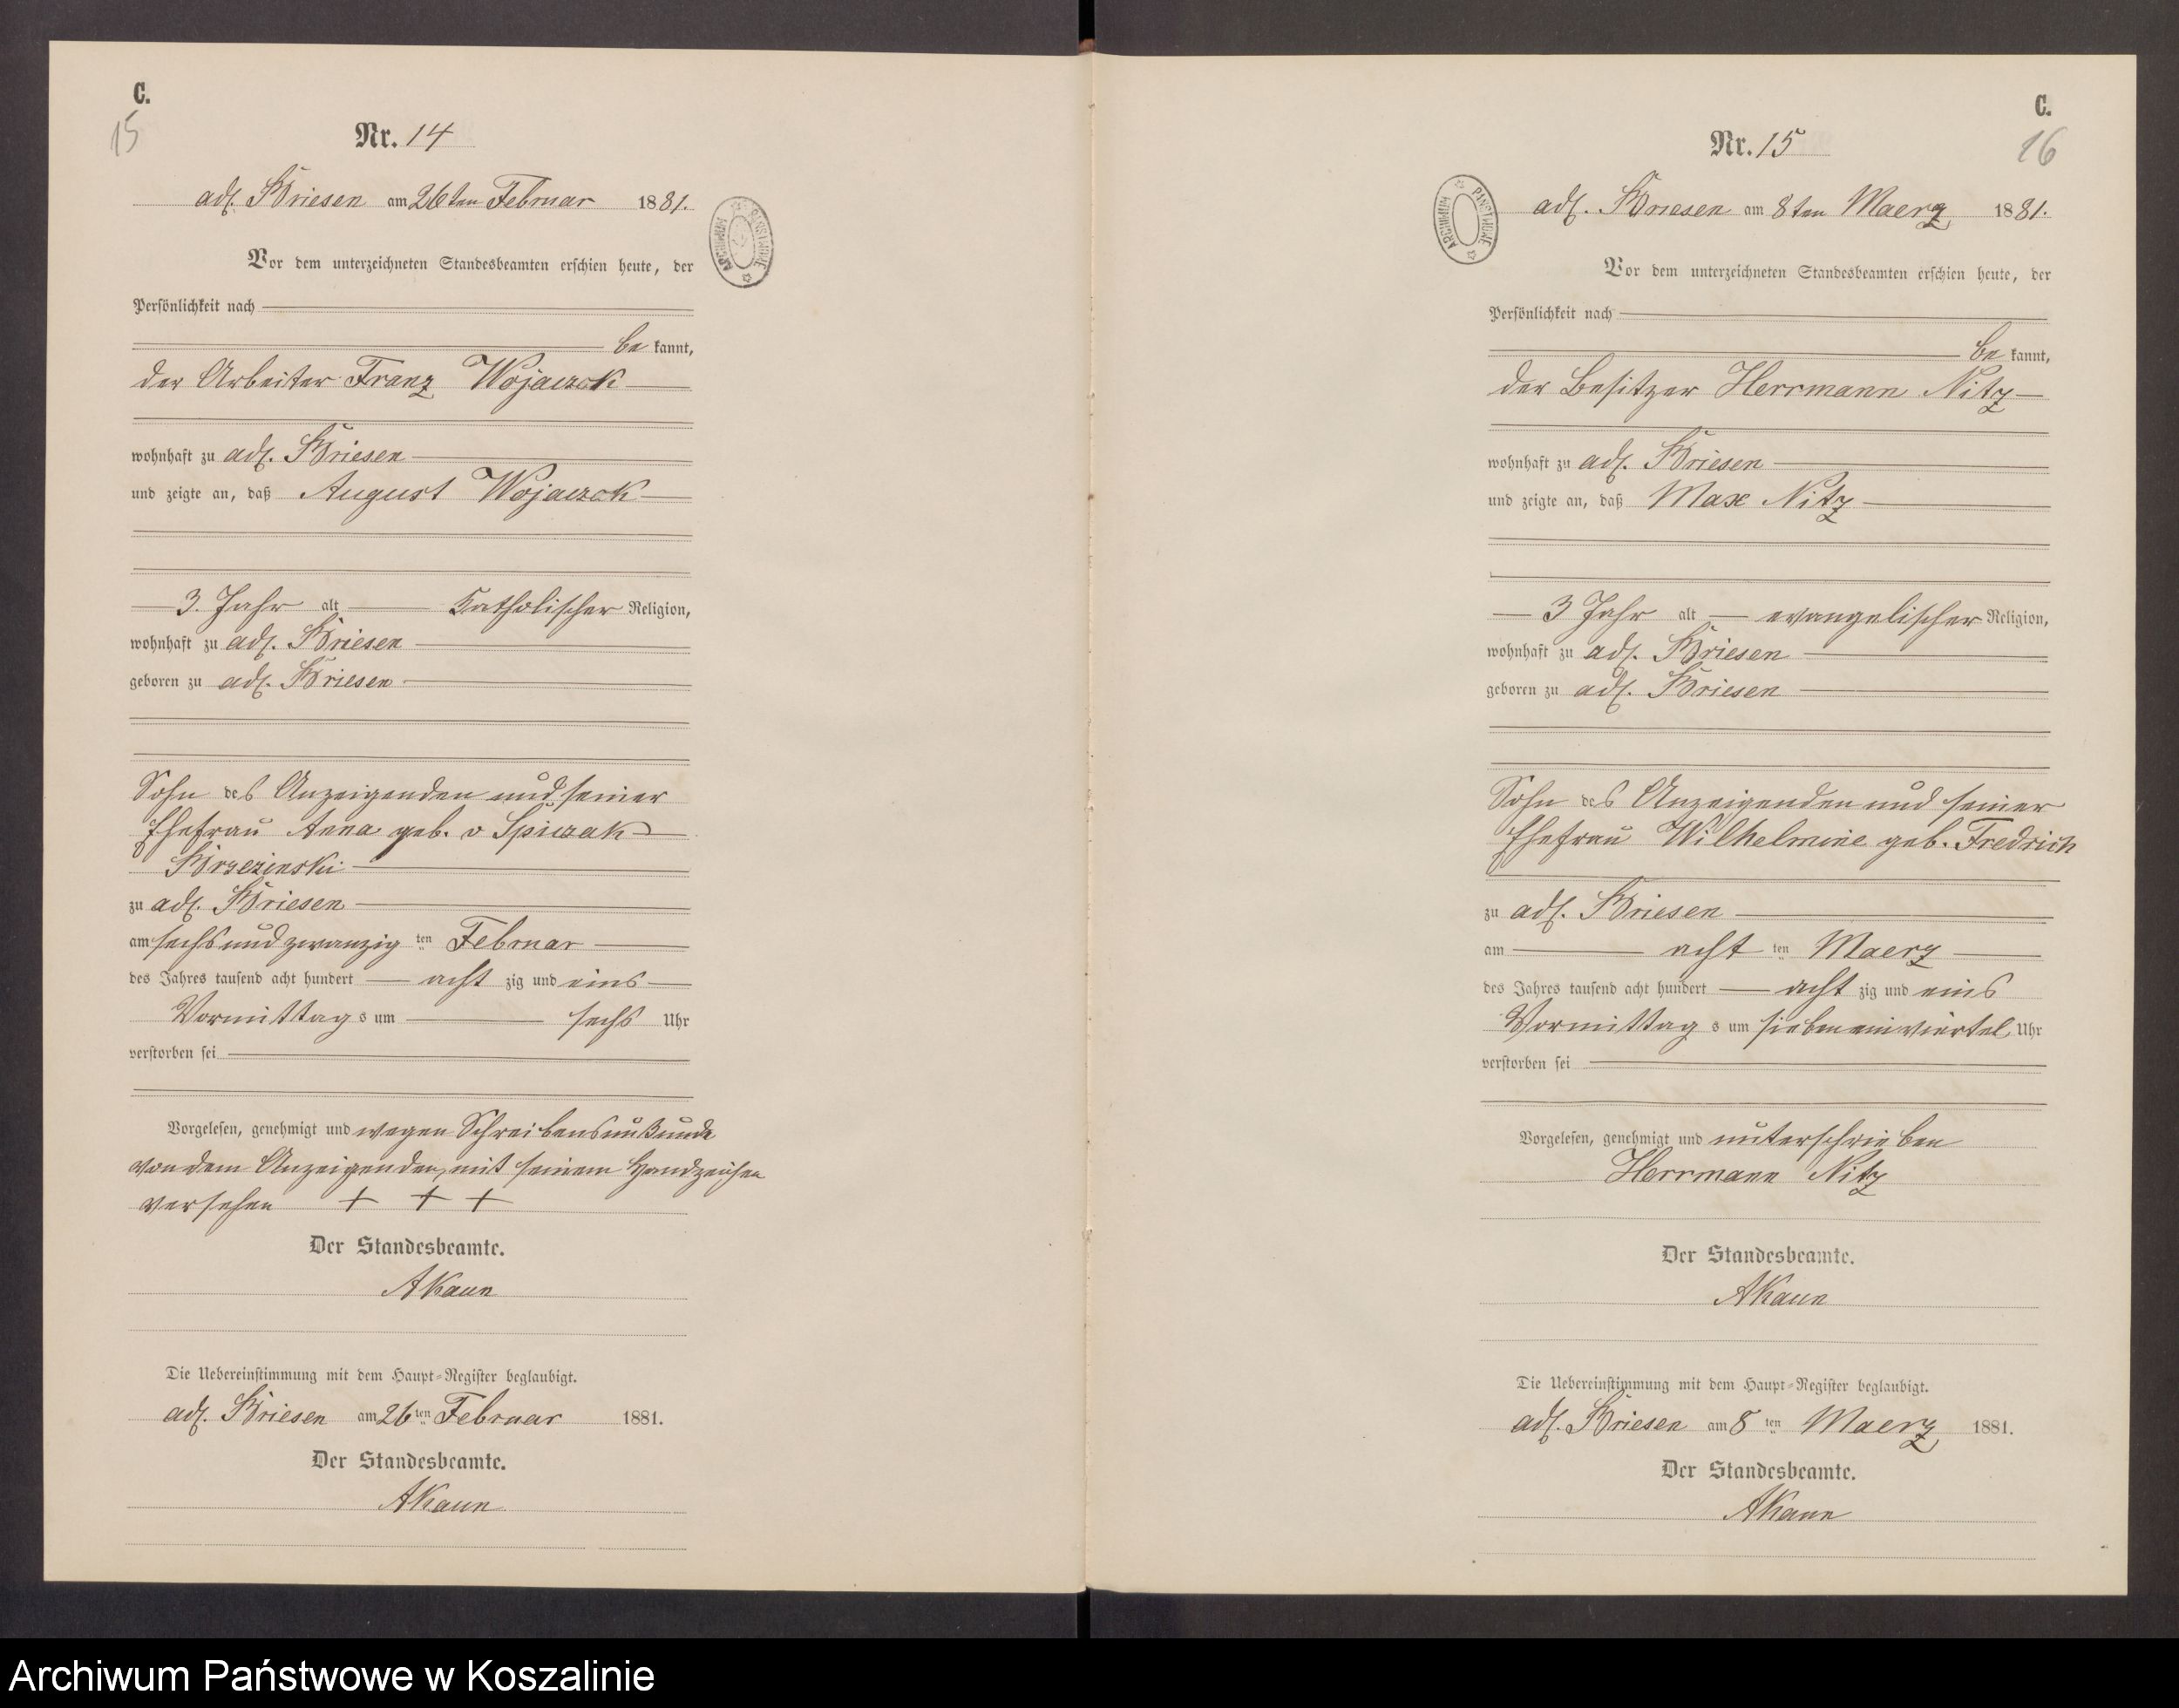 C.
15
Nr. 14
adl. Briesen am 26ten Februar 1881.
ARCHIWUM PAŃSTWOWE
Vor dem unterzeichneten Standesbeamten erschien heute, der
Persönlichkeit nach
be kannt,
der Arbeiter Franz Wojaczok
wohnhaft zu adl. Briesen
und zeigte an, daß August Wojaczok
3. Jahr alt Katholischer Religion,
wohnhaft zu adl. Briesen
geboren zu adl. Briesen
Sohn des Anzeigenden und seiner
Ehefrau Anna geb. v Spiczak
Brzezinski
zu adl. Briesen
am sechsundzwanzig ten Februar
des Jahres tausend acht hundert acht zig und eins
Vormittag s um sechs Uhr
verstorben sei
Vorgelesen, genehmigt und wegen Schreibensunkunde
von dem Anzeigenden, mit seinem Handzeichen
versehen + + +
Der Standesbeamte.
AKaun
Die Uebereinstimmung mit dem Haupt-Register beglaubigt.
adl. Briesen am 26 ten Februar 1881.
Der Standesbeamte.
AKaun
C.
16
Nr. 15
adl. Briesen am 8ten Maerz 1881.
ARCHIWUM PAŃSTWOWE
Vor dem unterzeichneten Standesbeamten erschien heute, der
Persönlichkeit nach
be kannt,
der Besitzer Herrmann Nitz
wohnhaft zu adl. Briesen
und zeigte an, daß Max Nitz
3 Jahr alt evangelischer Religion,
wohnhaft zu adl. Briesen
geboren zu adl. Briesen
Sohn des Anzeigenden und seiner
Ehefrau Wilhelmine geb. Fredrich
zu adl. Briesen
am acht ten Maerz
des Jahres tausend acht hundert acht zig und eins
Vormittag s um siebeneinviertel Uhr
verstorben sei
Vorgelesen, genehmigt und unterschrieben
Herrmann Nitz
Der Standesbeamte.
AKaun
Die Uebereinstimmung mit dem Haupt-Register beglaubigt.
adl. Briesen am 8 ten Maerz 1881.
Der Standesbeamte.
AKaun
Archiwum Państwowe w Koszalinie